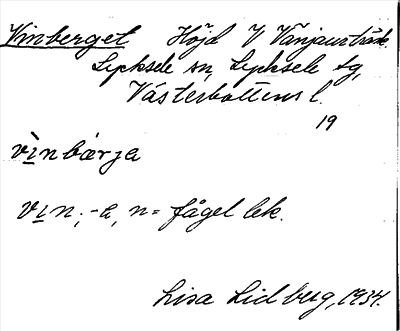 Vinberget Höjd V Vänjaurträsk.
Lycksele sn, Lycksele tg,
Västerbottens l.
19
vìnbærja
vin, -a, n = fågel lek.
Lisa Lidberg, 1934.